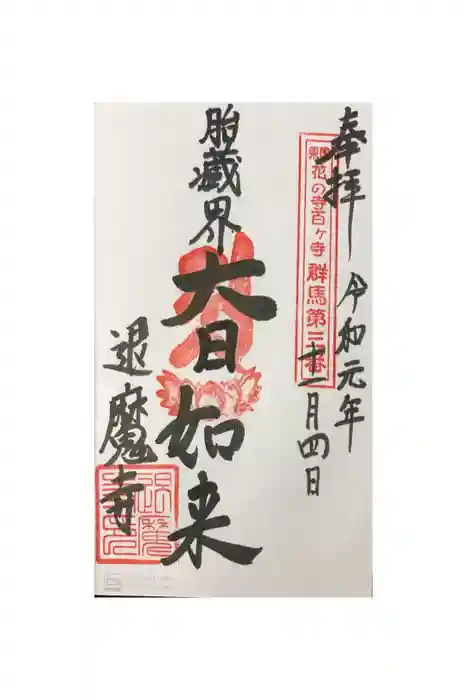 奉拝
令和元年
十一月四日
花の寺百ヶ寺 群馬第三番
胎蔵界
大日如来
退魔寺